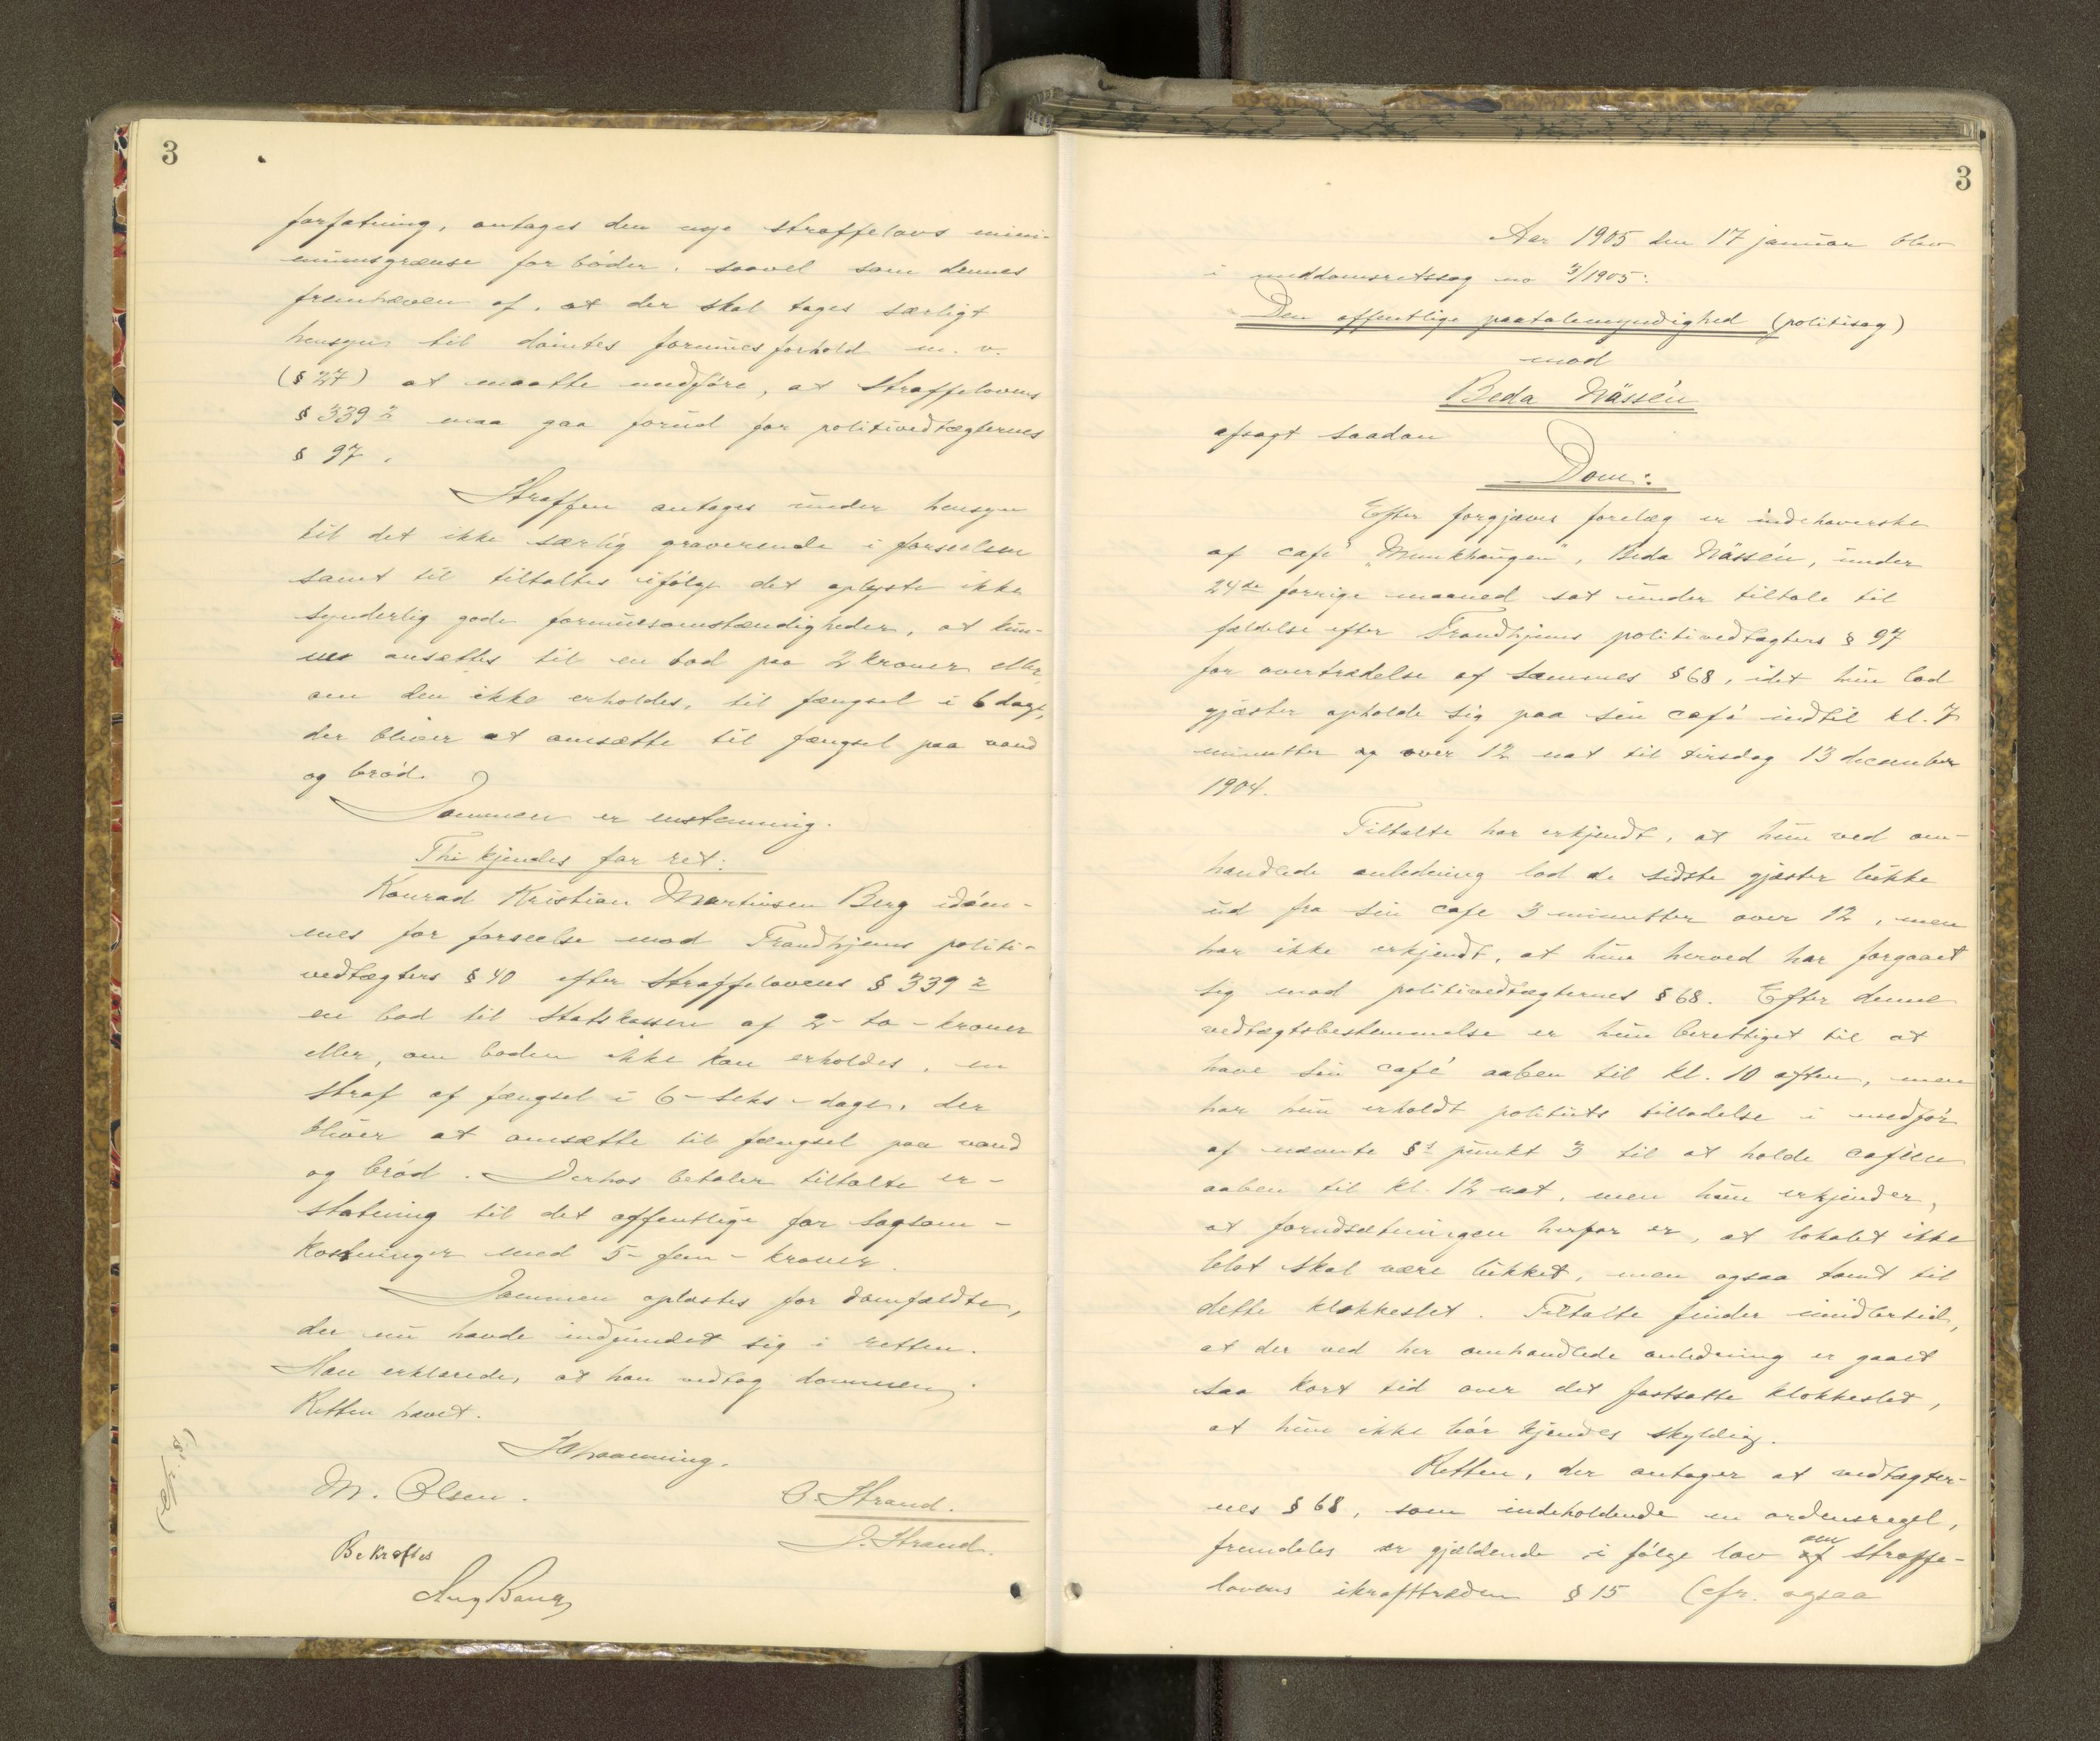 3
forfatning, antages den nye straffelovs mini-
mumsgrænse for bøder, saavel som dennes
fremhæven af, at der skal tages særligt
hensyn til dømtes formuesforhold m. v.
(§ 27) at maatte medføre, at straffelovens
§ 339 2 maa gaa forud for politivedtægternes
§ 97.
Straffen antages under hensyn
til det ikke særlig graverende i forseelsen
samt til tiltaltes ifølge det oplyste ikke
synderlig gode formuesomstændigheder, at kun-
ne ansættes til en bod paa 2 kroner eller,
om den ikke erholdes, til fængsel i 6 dage,
der bliver at omsætte til fængsel paa vand
og brød.
Dommen er enstemmig.
Thi kjendes for ret:
Konrad Kristian Martinsen Berg idøm-
mes for forseelse mod Trondhjems politi-
vedtægters § 40 efter straffelovens § 339 2
en bod til statskassen af 2 - to - kroner
eller, om boden ikke kan erholdes, en
straf af fængsel i 6 - seks - dage, der
bliver at omsætte til fængsel paa vand
og brød. Derhos betaler tiltalte er-
statning til det offentlige for sagsom-
kostninger med 5 - fem - kroner.
Dommen oplæstes for domfældte,
der nu havde indfundet sig i retten.
Han erklærede, at han vedtog dommen.
Retten hævet.
M. Olsen.
O. Strand.
O. Strand.
Bekræftes
3
Aar 1905 den 17 januar blev
i meddomsretssag no 3/1905:
Den offentlige paatalemyndighed (politisag)
mod
Beda Nässén
afsagt saadan
Dom:
Efter forgjæves forelæg er indehaverske
af café "Munkhaugen", Beda Nässén, under
24de forrige maaned sat under tiltale til
fældelse efter Trondhjems politivedtægters § 97
for overtrædelse af sammes § 68, idet hun lod
gjæster opholde sig paa sin café indtil kl. 7
minutter over 12 nat til tirsdag 13 december
1904.
Tiltalte har erkjendt, at hun ved om-
handlede anledning lod de sidste gjæster lukke
ud fra sin cafe 3 minutter over 12, men
har ikke erkjendt, at hun herved har forgaaet
sig mod politivedtægternes § 68. Efter denne
vedtægtsbestemmelse er hun berettiget til at
have sin café aaben til kl. 10 aften, men
har hun erholdt politiets tilladelse i medfør
af nævnte §s punkt 3 til at holde caféen
aaben til kl. 12 nat, men hun erkjender,
at forudsætningen herfor er, at lokalet ikke
blot skal være lukket, men ogsaa tomt til
dette klokkeslet. Tiltalte finder imidlertid,
at der ved her omhandlede anledning er gaaet
saa kort tid over det fastsatte klokkeslet,
at hun ikke bør kjendes skyldig.
Retten, der antager at vedtægter-
nes § 68, som indeholdende en ordensregel,
fremdeles er gjældende i følge lov om straffe-
lovens ikrafttræden § 15 (cfr. ogsaa